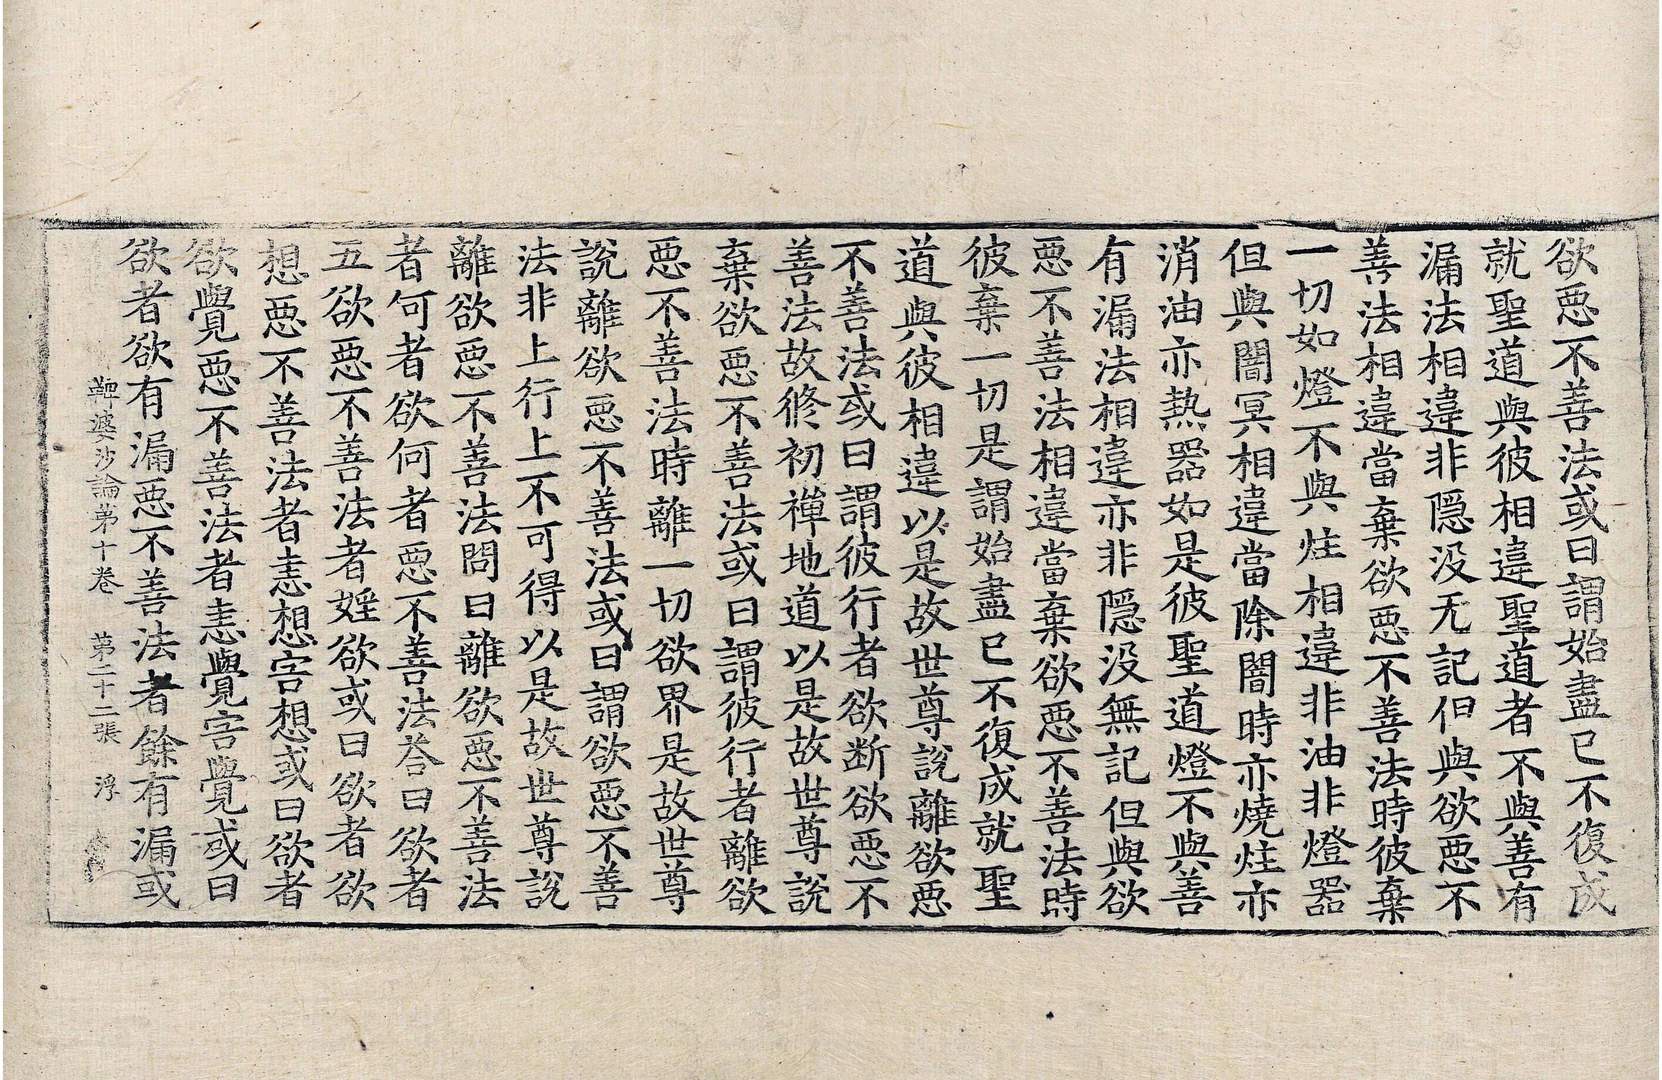 欲惡不善法或曰謂始盡已不復成
就聖道與彼相違聖道者不與善有
漏法相違非隱没无記但與欲惡不
善法相違當棄欲惡不善法時彼棄
一切如燈不與炷相違非油非燈器
但與闇冥相違當除闇時亦燒炷亦
消油亦熱器如是彼聖道燈不與善
有漏法相違亦非隱没無記但與欲
惡不善法相違當棄欲惡不善法時
彼棄一切是謂始盡已不復成就聖
道與彼相違以是故世尊說離欲惡
不善法或曰謂彼行者欲断欲惡不
善法故修初禪地道以是故世尊說
棄欲惡不善法或曰謂彼行者離欲
惡不善法時離一切欲界是故世尊
說離欲惡不善法或曰謂欲惡不善
法非上行上不可得以是故世尊說
離欲惡不善法問曰離欲惡不善法
者何者欲何者惡不善法荅曰欲者
五欲惡不善法者婬欲或曰欲者欲
想惡不善法者恚想害想或曰欲者
欲覺惡不善法者恚覺害覺或曰
欲者欲有漏惡不善法者餘有漏或
鞞婆沙論第十卷 第二十二張 浮